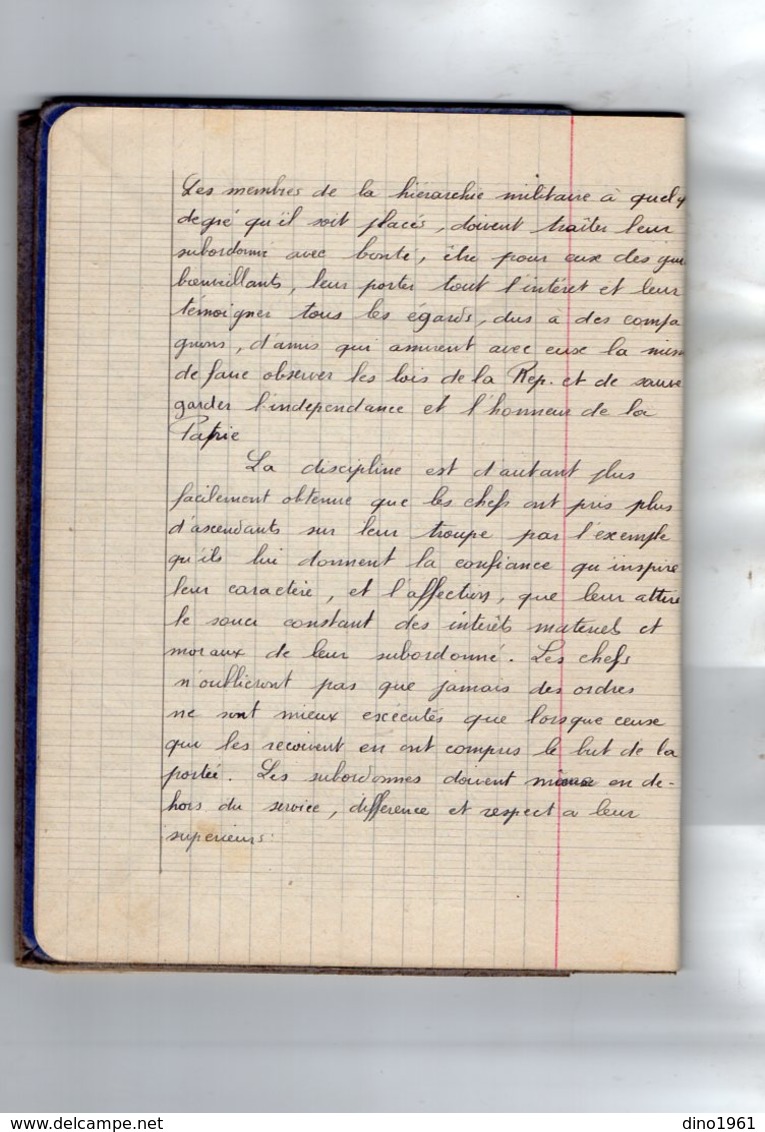 Les membres de la hiérarchie militaire à quelq
degré qu'il soit placés, doivent traiter leur
subordonné avec bonté, être pour eux des gui
bienveillants, leur porter tout l'intéret et leur
témoigner tous les égards, dus a des compa
gnons, d'amis qui assurent avec eux la miss
de faire observer les lois de la Rep. et de sauve
garder l'independance et l'honneur de la
Patrie
La discipline est d'autant plus
facilement obtenue que les chefs ont pris plus
d'ascendants sur leur troupe par l'exemple
qu'ils lui donnent la confiance qu'inspire
leur caractère, et l'affection, que leur attire
le souci constant des intérêts materiels et
moraux de leur subordonné. Les chefs
n'oublieront pas que jamais des ordres
ne sont mieux exécutés que lorsque ceux
qui les recoivent en ont compris le but de la
portée. Les subordonnes doivent même en de-
hors du service, différence et respect a leur
superieurs:
www.delcampe.net
dino1961